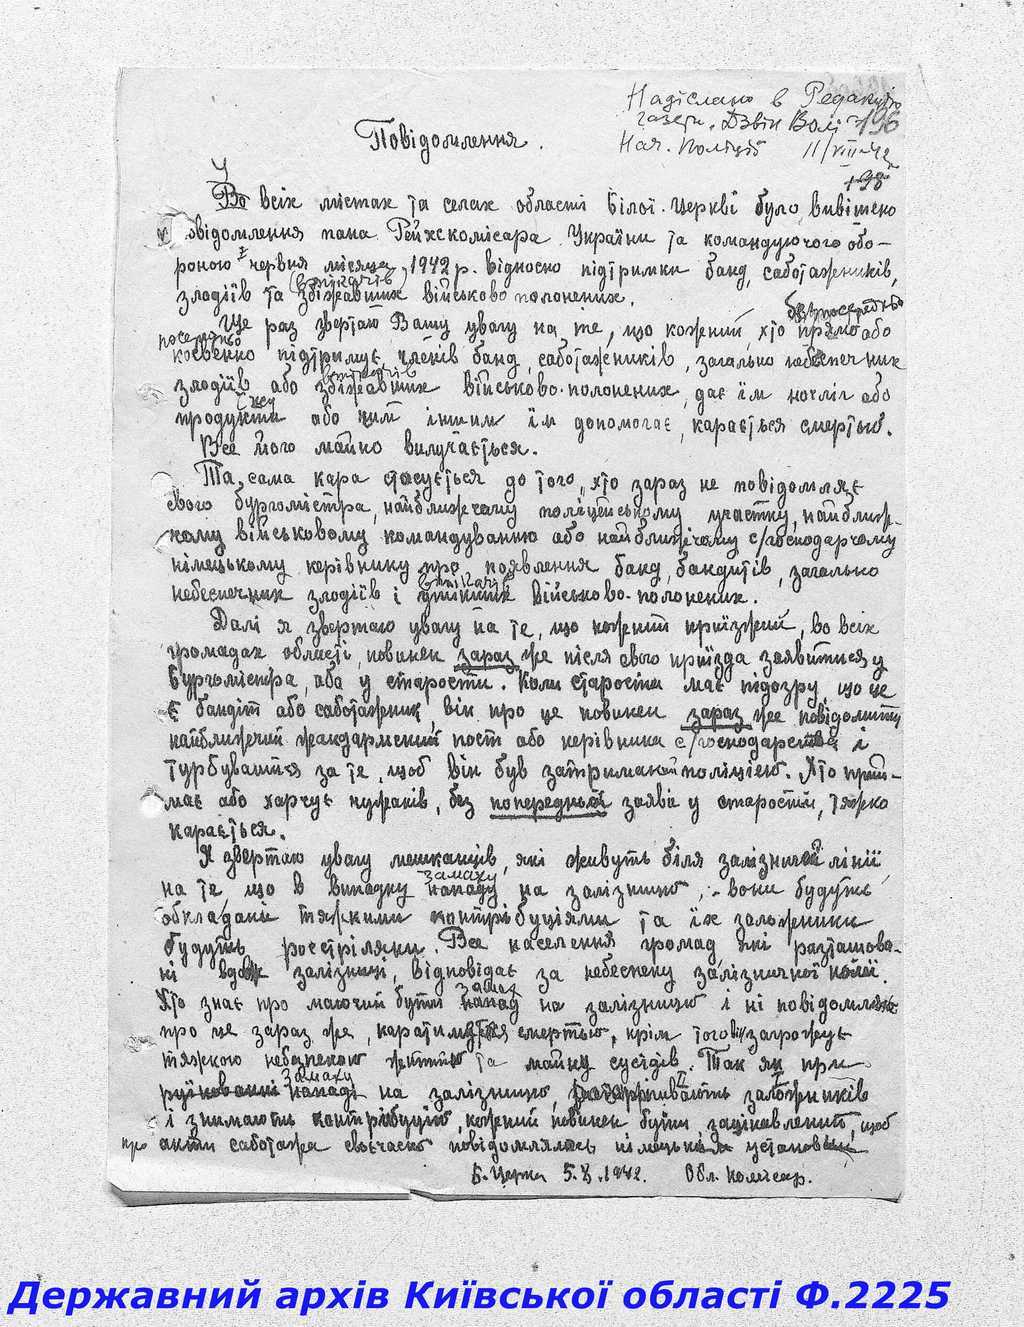 Надіслано в Редакцію
газети „Дзвін Волі" 196
Нач. Поліції 11/VIII-42
198
Повідомлення.
У
Во всіх містах та селах області Білої-Церкві було вивішено
повідомлення пана Рейхскомісара України та командуючого обо-
роною червня місяця 1942 р. відносно підтримки банд, саботажників,
(втікачів)
злодіїв та збіжавших військово полонених.
безпосередньо
Ще раз звертаю Вашу увагу на те, що кожний, хто прямо або
посередньо
косвенно підтримує членів банд, саботажників, загально небеспечних
втікачів
злодіїв або збіжавших військово-полонених, дає їм ночліг або
їжу
продукти або чим іншим їм допомогає, карається смертью.
Все його майно вилучається.
Та сама кара стосується до того, хто зараз не повідомляє
свого бургомістра, найближчому поліцейському участку, найближ-
чому військовому командуванню або найближчому с/господарчому
німецькому керівнику про появлення банд, бандитів, загально
втікачів
небеспечних злодіїв і військово-полонених.
Далі я звертаю увагу на те, що кожний приїзжий, во всіх
громадах області, повинен зараз же після свого приїзда заявитися у
Бургомістра, або у старости. Коли староста має підозру, що це
є бандіт або саботажник, він про це повинен зараз же повідомити
найближчий жандармский пост або керівника с/господарства і
турбуватися за те, щоб він був затриманий поліцією. Хто прий-
має або харчує чужаків, без попередньої заяви у старости, тяжко
карається.
Я звертаю увагу мешканців, які живуть біля залізничої лінії
замаху
на те, що в випадку нападу на залізницю, - вони будуть
обкладані тяжкими контрібуціями та їх заложники
будуть росстріляни. Все населення громад, які разташова-
ні вдовж залізниці, відповідає за небеспеку залізничної колії.
замах
Хто знає про маючий бути напад на залізницю і ні повідомляє
про це зараз же, каратиметься смертью, крім того він загрожує
тяжкою небезпекою життю та майну сусідів. Так як при
замаху
нападі на залізницю, заложників
і знимають контрібуцію, кожний повинен бути зацікавлений, щоб
про акти саботажа своєчасно повідомлялось німецьким установам
Б. Церква 5.X.1942. Обл. комісар.
Державний архів Київської області Ф.2225